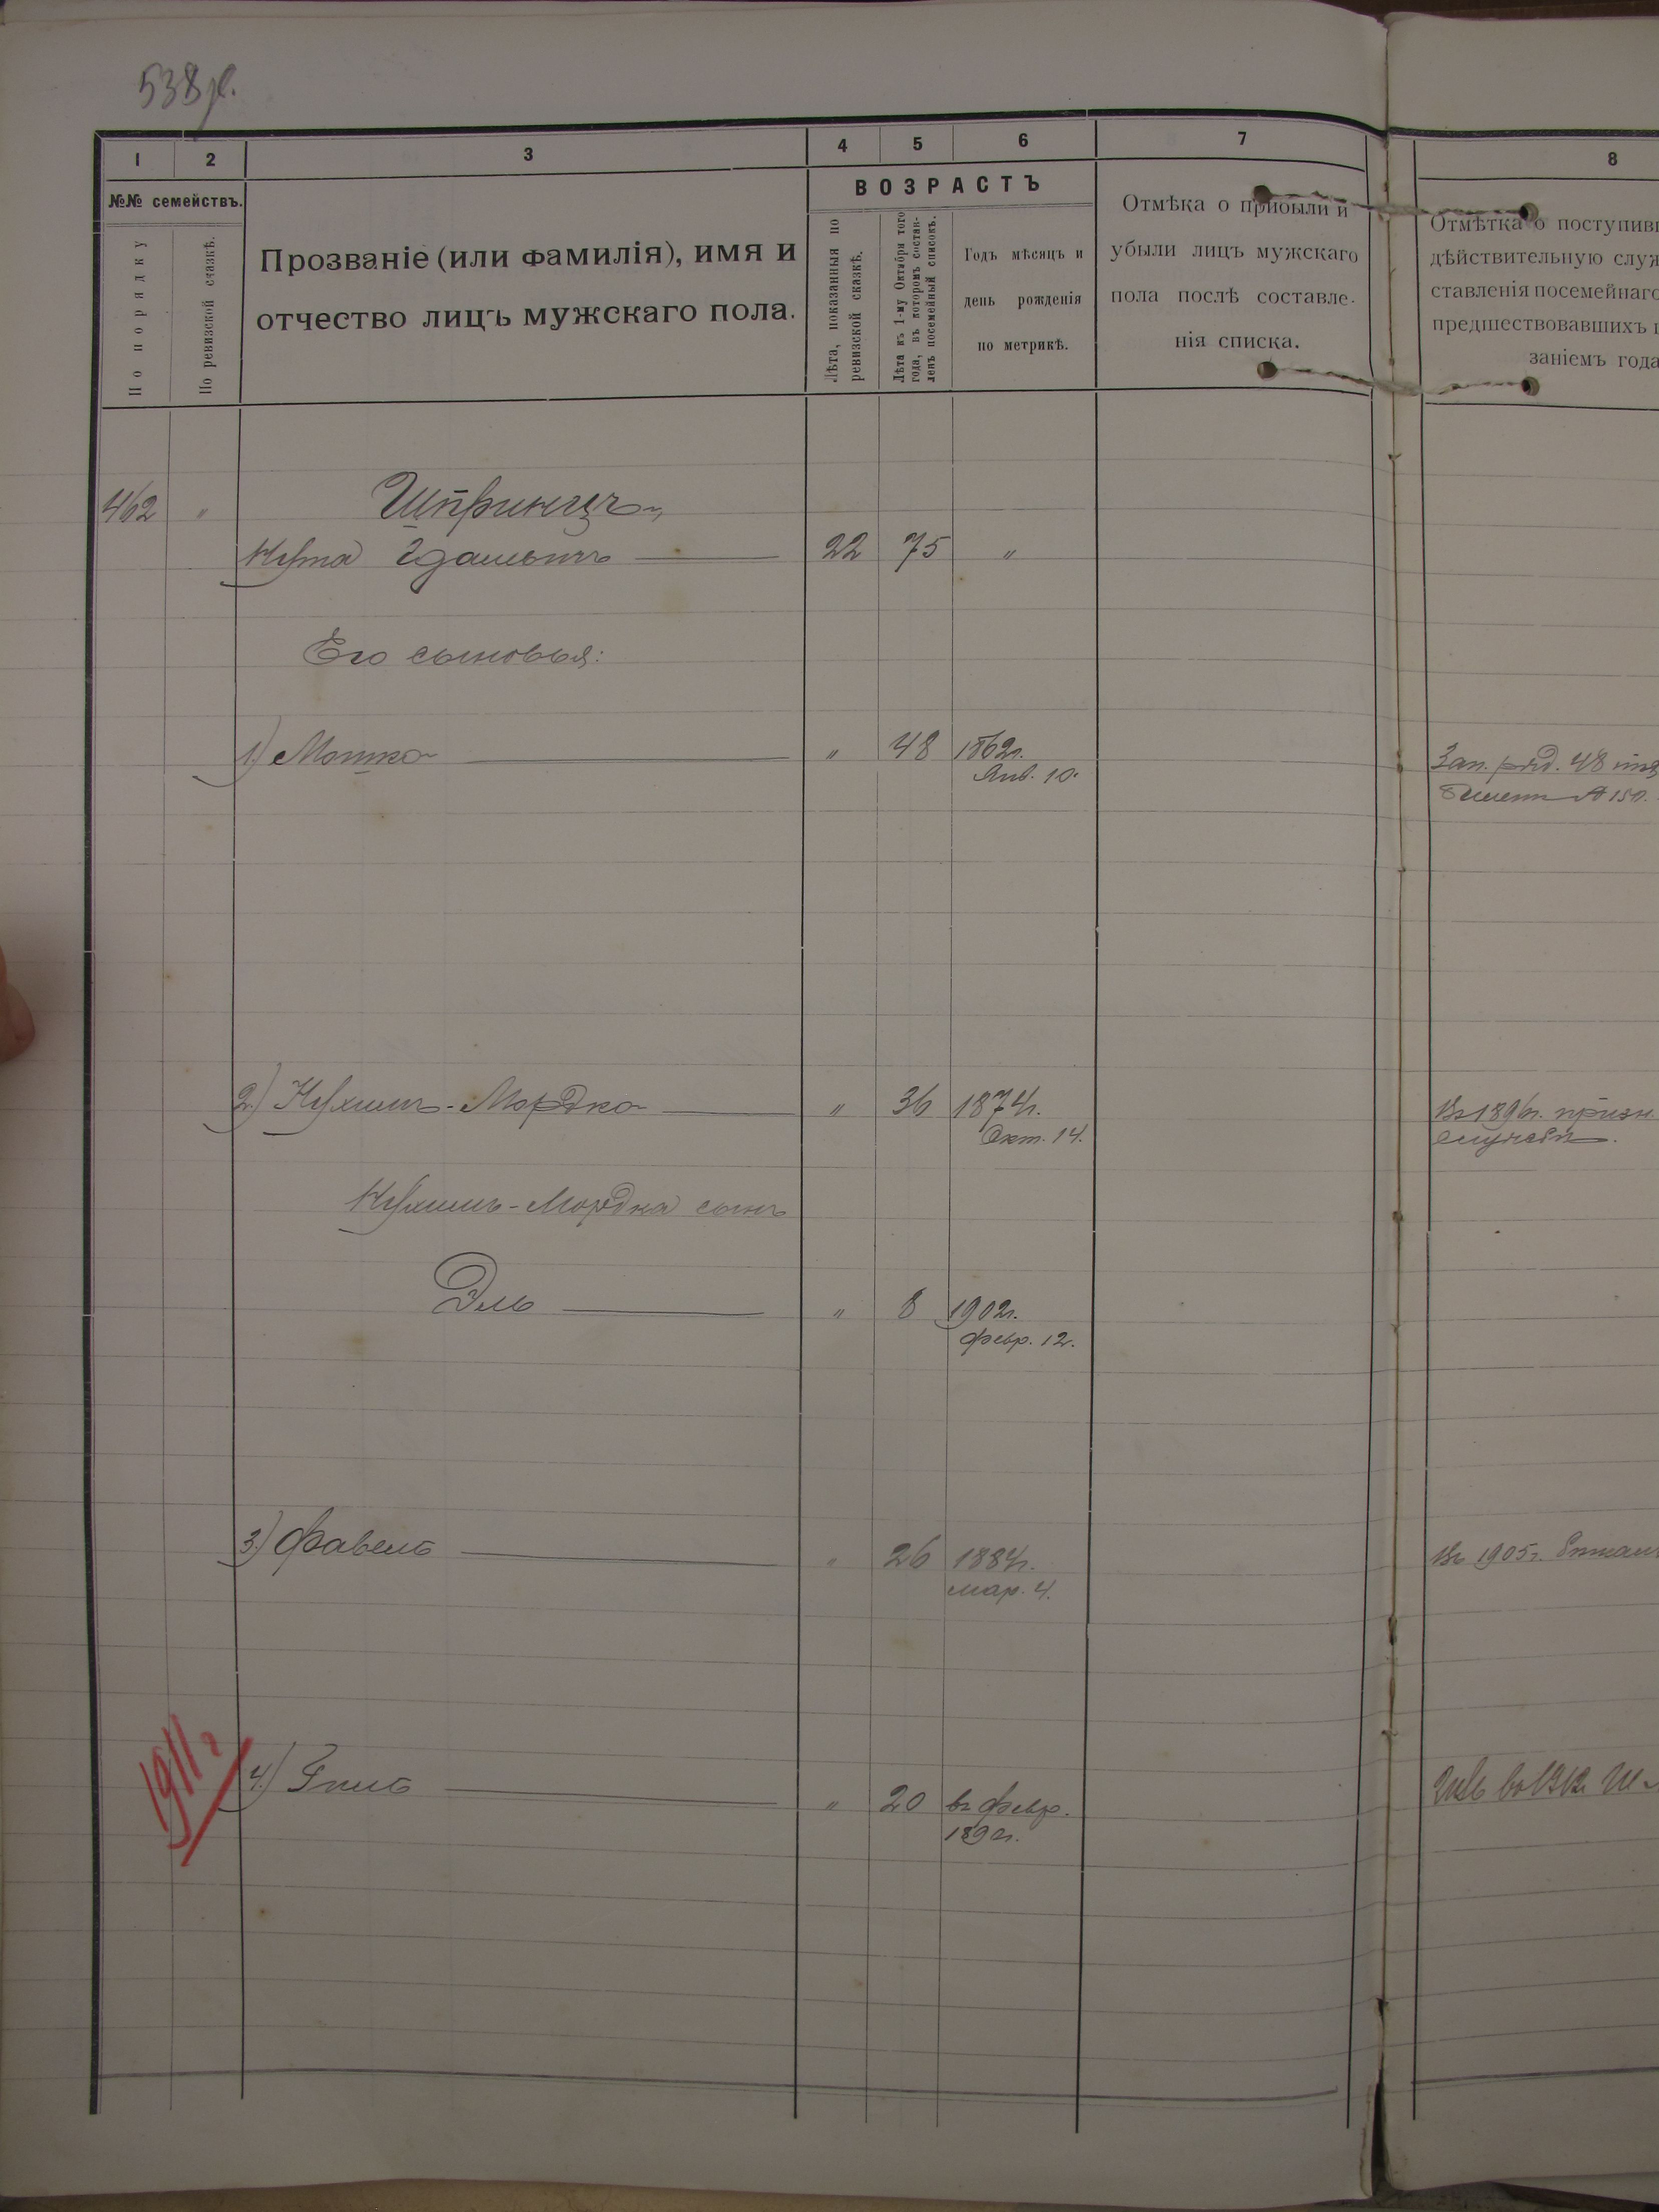 538
1
2
3
4
5
6
7
8
№№ семействъ.
По порядку
По ревизской сказкѣ.
Прозваніе (или фамилія), имя и
отчество лицъ мужскаго пола.
ВОЗРАСТЪ
Лѣта, показанныя по
ревизской сказкѣ.
Лѣта къ 1-му Октября того
года, въ которомъ состав-
ленъ посемейный списокъ.
Годъ мѣсяцъ и
день рожденія
по метрикѣ.
Отмѣка о прибыли и
убыли лицъ мужскаго
пола послѣ составле-
нія списка.
Отмѣтка о поступивш
дѣйствительную служ
ставленія посемейнаго
предшествовавшихъ
заніемъ года
462 "
Шпринцъ
Нута 22 75 "
Его сыновья:
1) Мошко " 48 1862г.
Янв. 10.
Зап. ряд. 48
билетъ
2) Нухимъ-Мордко " 36 1874г.
Окт. 14.
Въ 1896г. призн.
Нухимъ-Мордка сынъ
Эль " 8 1902г.
февр. 12.
3) Фавель " 26 1884г.
мар. 4.
Въ 1905г.
1911г
4) " 20 въ февр.
189